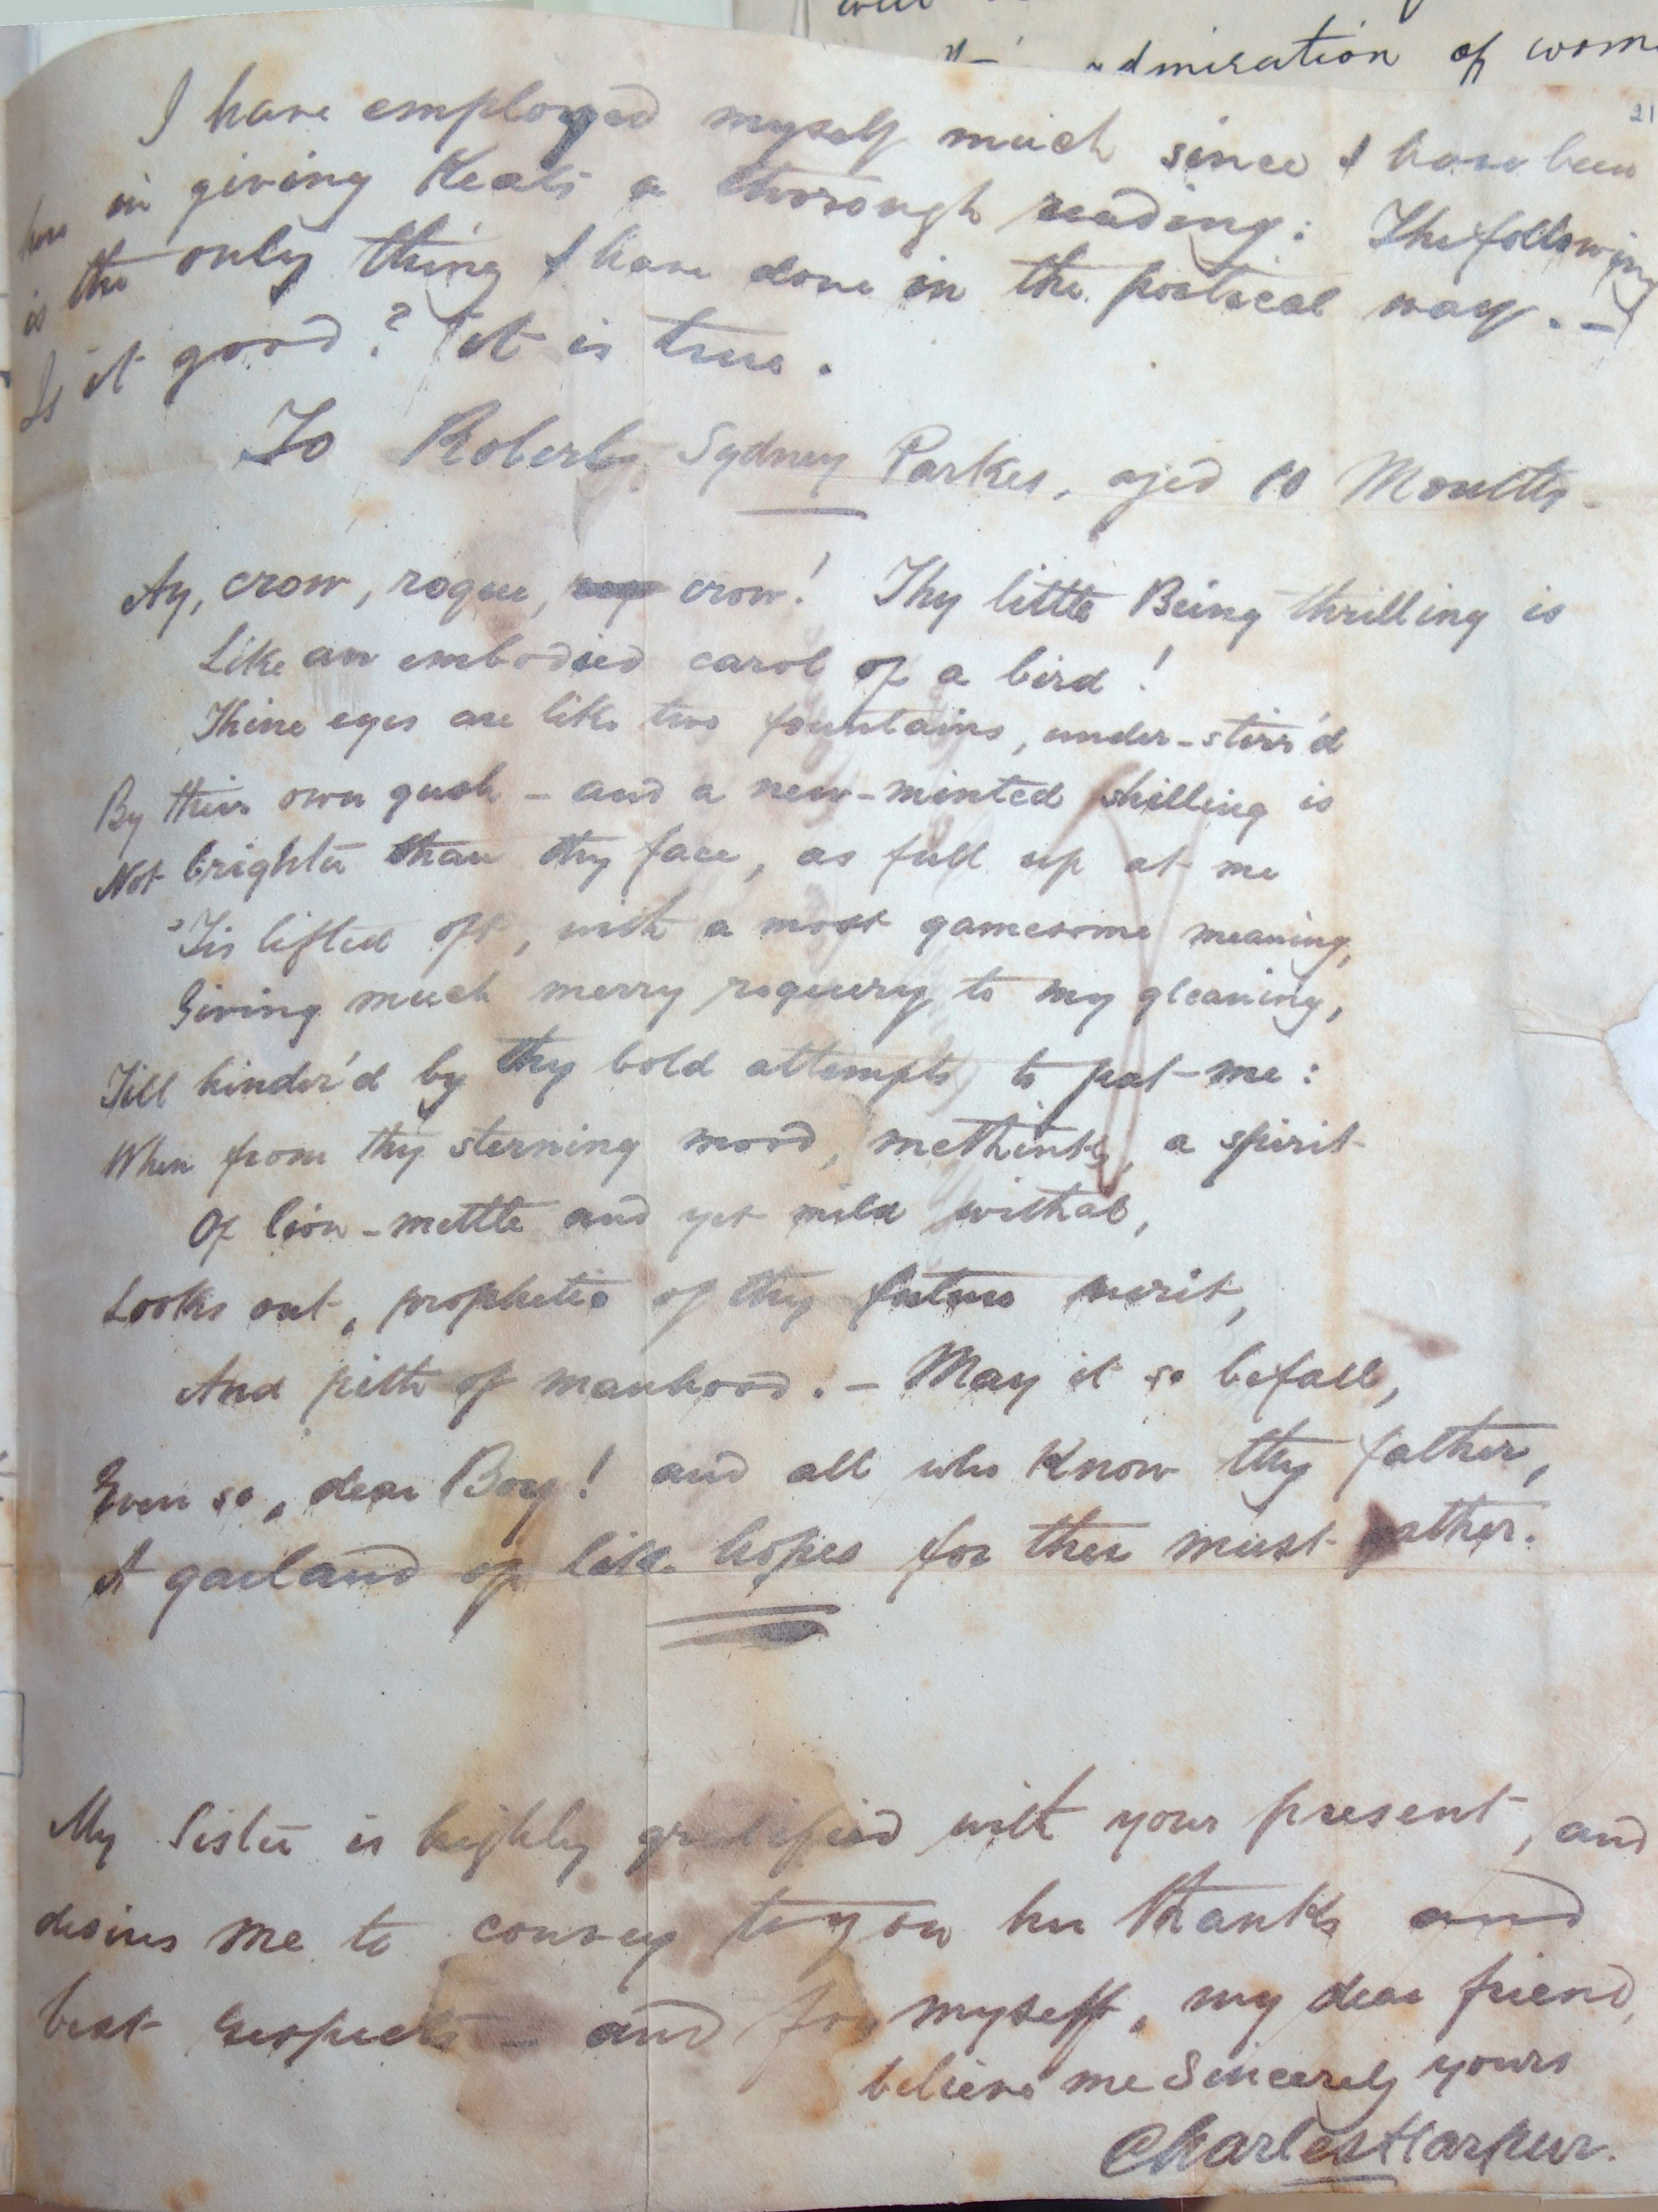 admiration of wom
21
I have employed myself much since I have been
here in giving Keats a thorough reading: The following
is the only thing I have done in the poetical way. —
Is it good? it is true.
To Robert Sydney Parkes, aged 10 Months.
Ay, crow, rogue, crow! Thy little Being thrilling is
Like an embodied carol of a bird!
Thine eyes are like two fountains, under-stirr'd
By their own gush — and a new-minted shilling is
Not brighter than thy face, as full up at me
'Tis lifted oft, with a most gamesome meaning,
Giving much merry roguery to my gleaning,
Till hinder'd by thy bold attempts to pat-me:
When from thy sterning mood, methinks, a spirit
Of lion-mettle and yet mild withal,
Looks out, prophetic of thy future merit,
And pith of manhood. — May it so befall,
Even so, dear Boy! and all who know thy father,
A garland of like hopes for thee must gather.
My Sister is highly gratified with your present, and
desires me to convey to you her thanks and
best respects — and for myself, my dear friend,
believe me Sincerely yours
Charles Harpur.